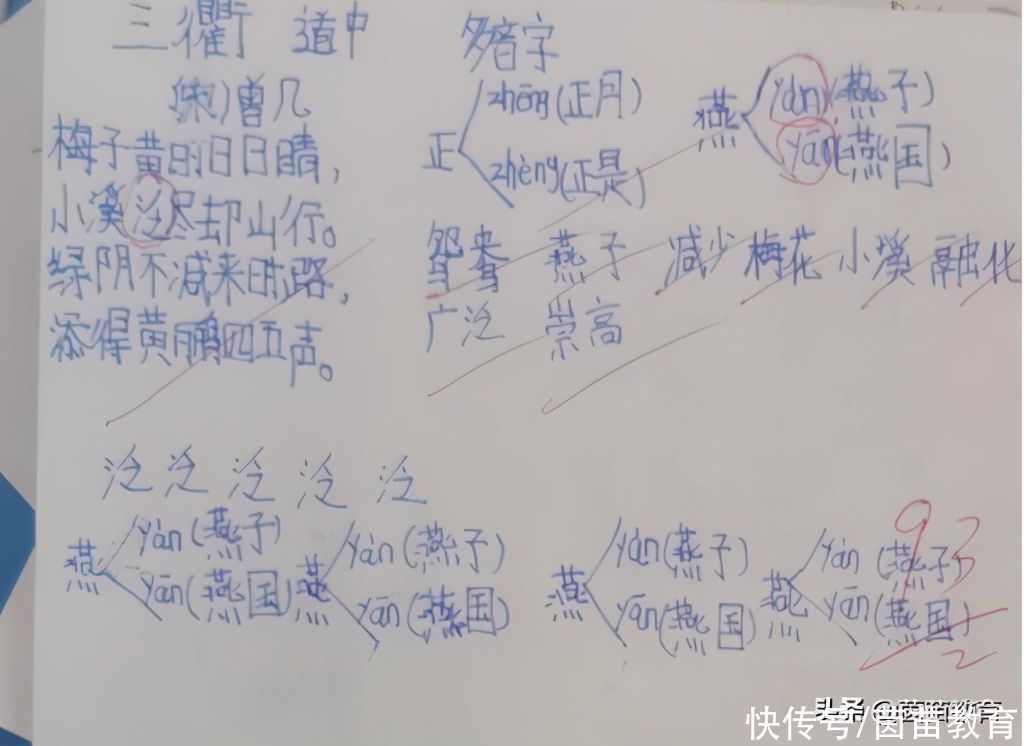 三衢道中
(宋)曾几
梅子黄时日日晴，
小溪泛尽却山行。
绿阴不减来时路，
添得黄鹂四五声。
多音字
正 zhēng(正月) zhèng(正是)
燕 yàn(燕子) yān(燕国)
鸳鸯 燕子 减少 梅花 小溪 融化
广泛 崇高
泛 泛 泛 泛 泛
燕 yàn(燕子) yān(燕国) 燕 yàn(燕子) yān(燕国) 燕 yàn(燕子) yān(燕国) 燕 yàn(燕子) yān(燕国)
93
2
头条 @茵苗教育
快传号/茵苗教育